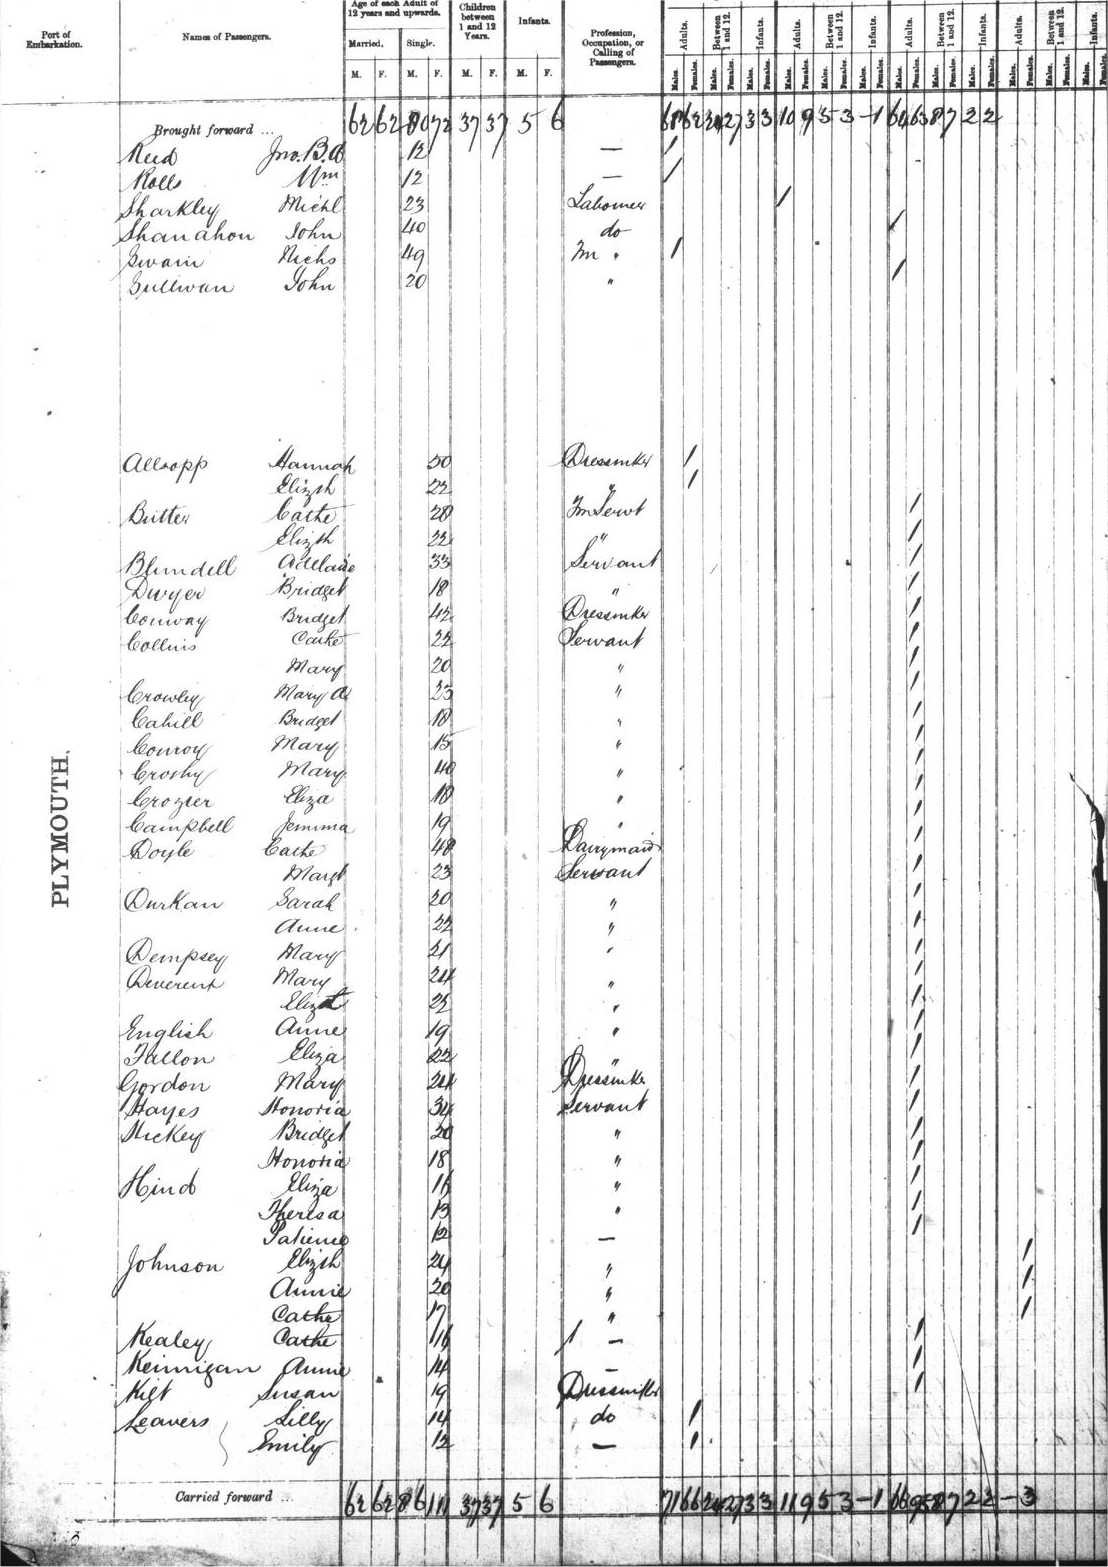 Port of Embarkation. Names of Passengers. Age of each Adult of 12 years and upwards. Children between 1 and 12 Years. Infants. Profession, Occupation, or Calling of Passengers. Adults. Between 1 and 12. Infants. Adults. Between 1 and 12. Infants. Adults. Between 1 and 12. Infants. Adults. Between 1 and 12. Infants.
Married. Single.
M. F. M. F. M. F. M. F. Males. Females. Males. Females. Males. Females. Males. Females. Males. Females. Males. Females. Males. Females. Males. Females. Males. Females. Males. Females. Males. Females. Males.
Brought forward ... 62 62 80 72 37 37 5 6 62 27 3 3 10 9 5 3 - 1 64 63 8 7 2 2
Reid Jno. B. A 12 — /
Rolls Wm 12 — /
Sharkley Michl 23 Labourer /
Shanahan John 40 do /
Swain Nichs 49 Fm " /
Sullivan John 20 " /
PLYMOUTH.
Allsopp Hannah 50 Dressmker /
Elizth 22 " /
Bitter Cathe 28 Fm Servt /
Elizth 22 " /
Blundell Adelaide 33 Servant /
Dwyer Bridget 18 " /
Conway Bridget 42 Dressmker /
Collins Cathe 22 Servant /
Mary 20 " /
Crowley Mary A 23 " /
Cahill Bridget 18 " /
Conroy Mary 15 " /
Crosby Mary 40 " /
Crozier Eliza 18 " /
Campbell Jemima 19 " /
Doyle Cathe 48 Dairymaid /
Margt 23 Servant /
Durkan Sarah 20 " /
Anne 22 " /
Dempsey Mary 21 " /
Deverent Mary 24 " /
Elizth 22 " /
English Anne 19 " /
Fallon Eliza 22 " /
Gordon Mary 24 Dressmker /
Hayes Honoria 34 Servant /
Hickey Bridget 20 " /
Honoria 18 " /
Hind Eliza 16 " /
Theresa 13 " /
Patience 12 — /
Johnson Elizth 24 " /
Annie 20 " /
Cathe 17 " /
Kealey Cathe 16 — /
Keinnigan Annie 14 — /
Kilt Susan 19 Dressmker /
Leavers Lilly 14 do /
Emily 12 — /
Carried forward ... 62 62 86 111 37 37 5 6 71 66 27 3 3 11 9 5 3 - 1 66 95 8 7 2 2 - 3